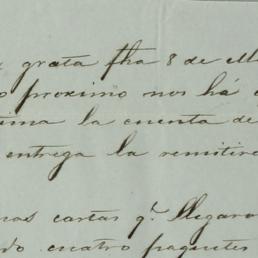 grata fha 8 de
proximo nos há
la cuenta de
entrega la remitire
cartas q.e llegaro
cuatro paquetes